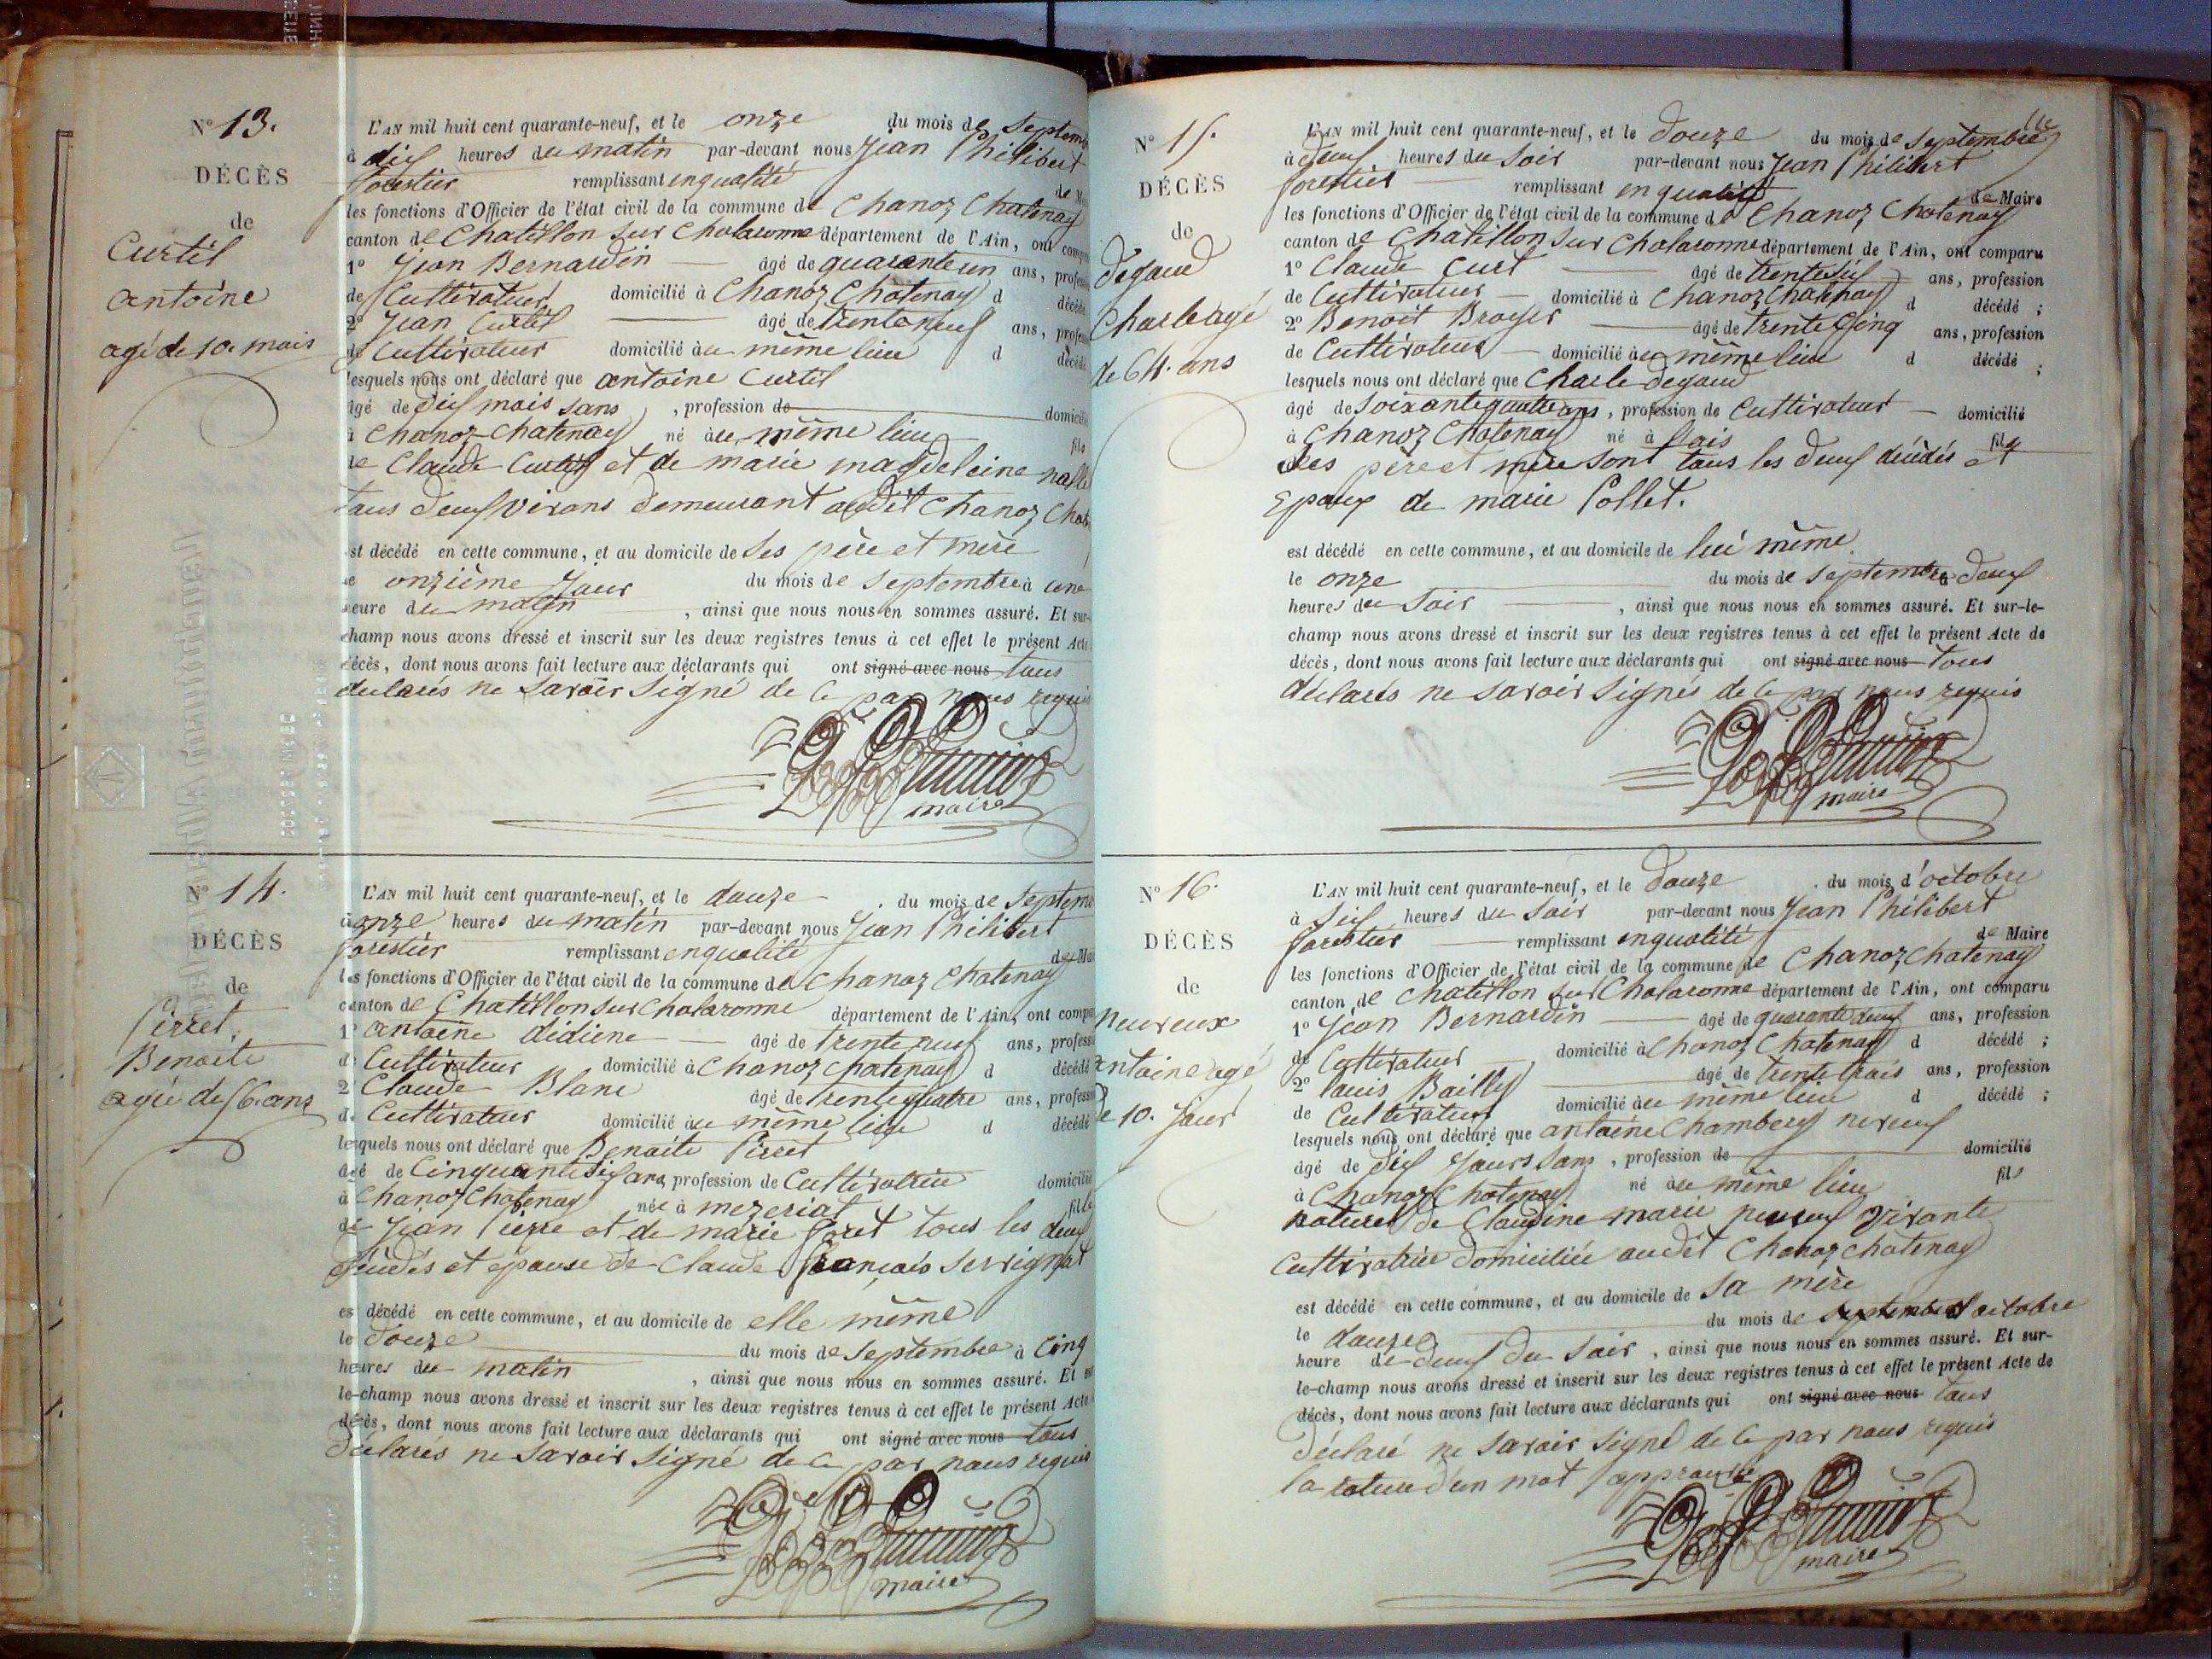 Nº 13.
DÉCÈS
de
Curtil
antoine
agé de 10. mois
L'AN mil huit cent quarante-neuf, et le onze du mois de Septem
à dix heures du matin par-devant nous Jean Philibert
forestier remplissant en qualité
les fonctions d'Officier de l'état civil de la commune de Chanoz Chatenay
canton de Chatillon sur Chalaronne département de l'Ain, ont
1º Jean Bernardin âgé de quarante un ans,
de Cultivateur domicilié à Chanoz Chatenay d décédé
2º Jean Curtil âgé de trente neuf ans,
de Cultivateur domicilié au même lieu d décédé
lesquels nous ont déclaré que antoine Curtil
âgé de dix mois sans, profession de
à Chanoz-Chatenay né au même lieu fils
de Claude Curtil et de marie magdeleine
tous deux vivans demeurant audit Chanoz
est décédé en cette commune, et au domicile de Ses père et mère
le onzième Jour du mois de septembre à une
heure du matin, ainsi que nous nous en sommes assuré. Et sur-
champ nous avons dressé et inscrit sur les deux registres tenus à cet effet le présent Acte
décès, dont nous avons fait lecture aux déclarants qui ont signé avec nous tous
declarés ne Savoir Signé de Ce par nous requis
maire
Nº 14.
DÉCÈS
de
Perret
Benoite
agée de 56. ans
L'AN mil huit cent quarante-neuf, et le douze du mois de Septem
à onze heures du matin par-devant nous Jean Philibert
forestier remplissant en qualité
les fonctions d'Officier de l'état civil de la commune de Chanoz Chatenay
canton de Chatillon sur Chalaronne département de l'Ain, ont
1º antoine didiene âgé de trente neuf ans,
de Cultivateur domicilié à Chanoz Chatenay d décédé
2º Claude Blanc âgé de trente quatre ans,
de Cultivateur domicilié au même lieu d décédé
lesquels nous ont déclaré que Benoite Perret
âgé de Cinquante Six ans, profession de Cultivatrice
à Chanoz Chatenay née à mezeriat fille
de Jean Pierre et de marie foret tous les deux
décédés et épouse de Claude françois Servignat
est décédé en cette commune, et au domicile de elle même
le douze du mois de Septembre à Cinq
heures du matin, ainsi que nous nous en sommes assuré. Et
le-champ nous avons dressé et inscrit sur les deux registres tenus à cet effet le présent Acte
décès, dont nous avons fait lecture aux déclarants qui ont signé avec nous tous
déclarés ne Savoir Signé de Ce par nous requis
maire
Nº 15.
DÉCÈS
de
degaud
Charle agé
de 64. ans
L'AN mil huit cent quarante-neuf, et le douze du mois de Septembre
à deux heures du Soir par-devant nous Jean Philibert
forestier remplissant en qualité de Maire
les fonctions d'Officier de l'état civil de la commune de Chanoz Chatenay
canton de Chatillon sur Chalaronne département de l'Ain, ont comparu
1º Claude Curt âgé de trente Six ans, profession
de Cultivateur domicilié à Chanoz Chatenay d décédé ;
2º Benoit Broyer âgé de trente Cinq ans, profession
de Cultivateur domicilié au même lieu d décédé ;
lesquels nous ont déclaré que Charle degaud
âgé de Soixante quatre ans, profession de Cultivateur domicilié
à Chanoz Chatenay né à fils
Ses père et mère sont tous les deux décédés et
Epoux de marie Pollet.
est décédé en cette commune, et au domicile de lui même
le onze du mois de septembre à deux
heures du Soir, ainsi que nous nous en sommes assuré. Et sur-le-
champ nous avons dressé et inscrit sur les deux registres tenus à cet effet le présent Acte de
décès, dont nous avons fait lecture aux déclarants qui ont signé avec nous tous
déclarés ne savoir Signés de Ce par nous requis
maire
Nº 16.
DÉCÈS
de
neureux
antoine agé
de 10. Jours
L'AN mil huit cent quarante-neuf, et le douze du mois d'octobre
à Six heures du Soir par-devant nous Jean Philibert
forestier remplissant en qualité de Maire
les fonctions d'Officier de l'état civil de la commune de Chanoz Chatenay
canton de Chatillon sur Chalaronne département de l'Ain, ont comparu
1º Jean Bernardin âgé de quarante deux ans, profession
de Cultivateur domicilié à Chanoz Chatenay d décédé ;
2º louis Bailly âgé de trente trois ans, profession
de Cultivateur domicilié au même lieu d décédé ;
lesquels nous ont déclaré que antoine Chambery
âgé de dix Jours Sans, profession de domicilié
à Chanoz Chatenay né au même lieu fils
naturel de Claudine marie vivante
Cultivatrice domiciliée audit Chanoz chatenay
est décédé en cette commune, et au domicile de Sa mère
le douze du mois de septembre octobre
heure de deux du Soir, ainsi que nous nous en sommes assuré. Et sur-
le-champ nous avons dressé et inscrit sur les deux registres tenus à cet effet le présent Acte de
décès, dont nous avons fait lecture aux déclarants qui ont signé avec nous tous
déclaré ne Savoir Signé de Ce par nous requis
la rature d'un mot approuvé
maire